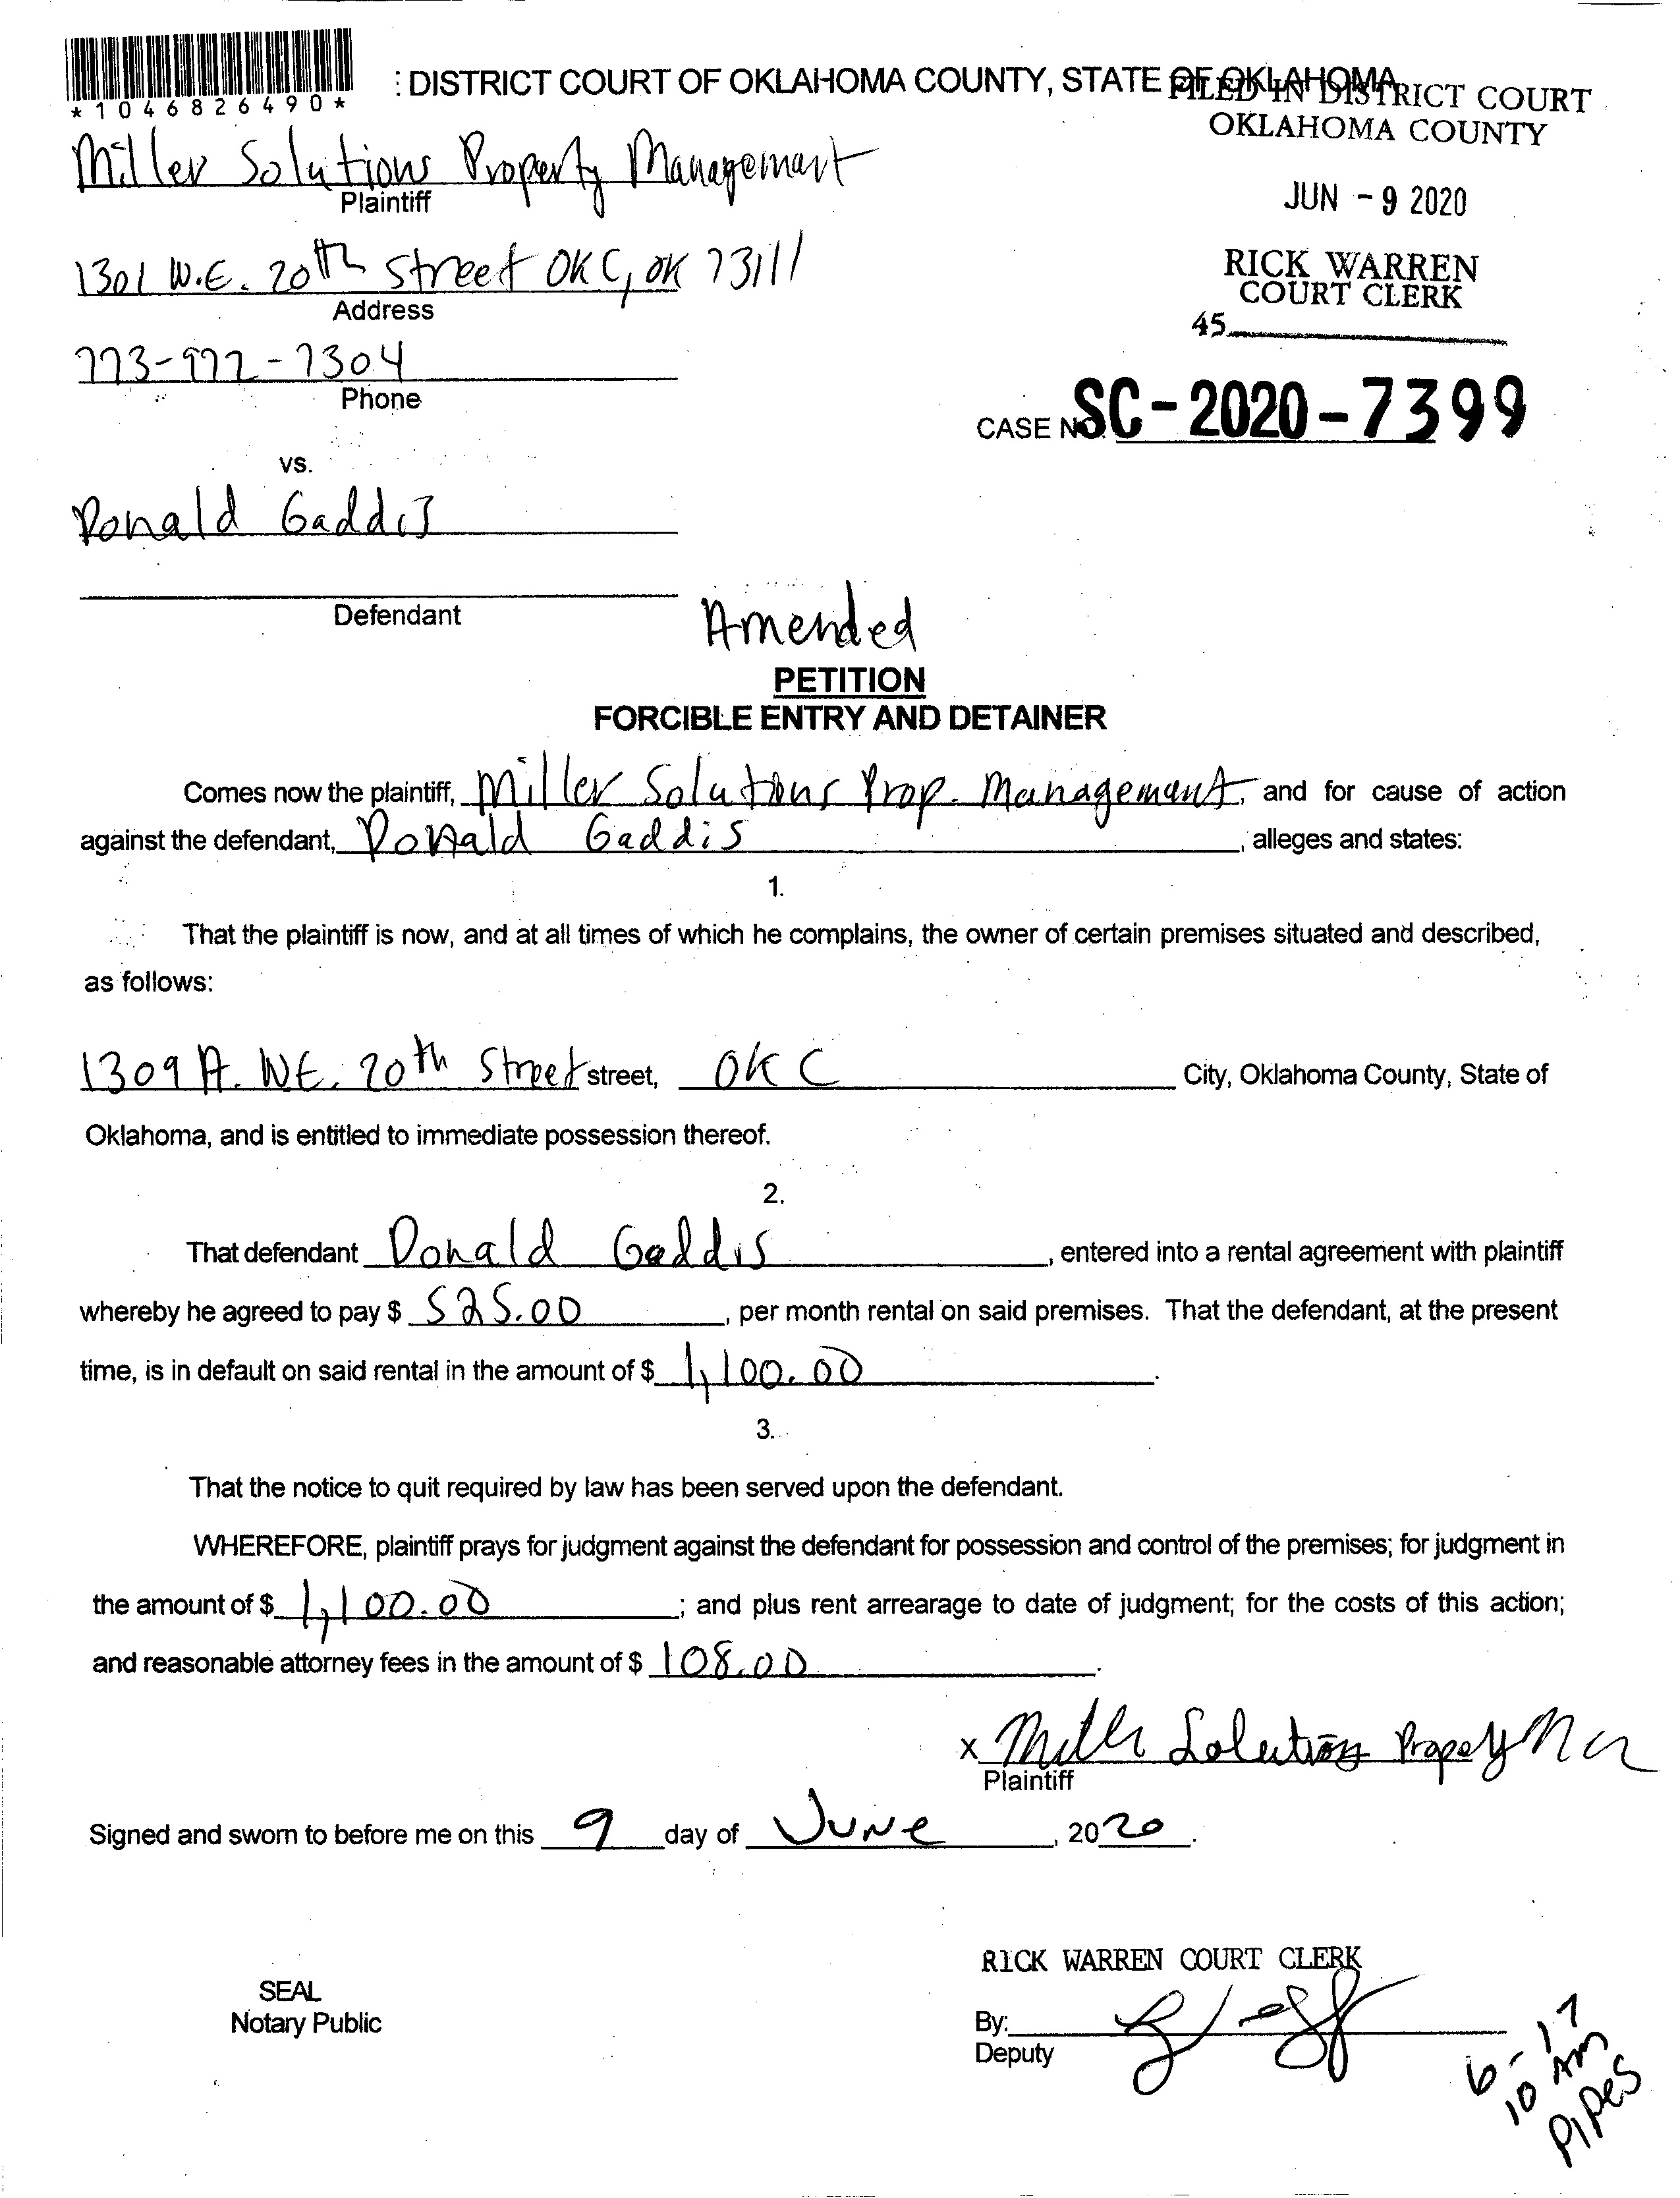 *1046826490*
: DISTRICT COURT OF OKLAHOMA COUNTY, STATE OF OKLAHOMA
FILED IN DISTRICT COURT
OKLAHOMA COUNTY
JUN - 9 2020
RICK WARREN
COURT CLERK
45
Miller Solutions Property Management
Plaintiff
1301 N.E. 20th Street OKC, OK 73111
Address
773-977-7304
Phone
CASE NO. SC-2020-7399
vs.
Donald Gaddis
Defendant
Amended
PETITION
FORCIBLE ENTRY AND DETAINER
Comes now the plaintiff, Miller Solutions Prop. Management, and for cause of action
against the defendant, Donald Gaddis, alleges and states:
1.
That the plaintiff is now, and at all times of which he complains, the owner of certain premises situated and described,
as follows:
1309 A. NE. 20th Street street, OKC City, Oklahoma County, State of
Oklahoma, and is entitled to immediate possession thereof.
2.
That defendant Donald Gaddis, entered into a rental agreement with plaintiff
whereby he agreed to pay $ 525.00, per month rental on said premises. That the defendant, at the present
time, is in default on said rental in the amount of $ 1,100.00.
3.
That the notice to quit required by law has been served upon the defendant.
WHEREFORE, plaintiff prays for judgment against the defendant for possession and control of the premises; for judgment in
the amount of $ 1,100.00; and plus rent arrearage to date of judgment; for the costs of this action;
and reasonable attorney fees in the amount of $ 108.00.
x Miller Solutions Property
Plaintiff
Signed and sworn to before me on this 9 day of June, 2020.
RICK WARREN COURT CLERK
SEAL
Notary Public
By:
Deputy
6-17
10 AM
Pipes